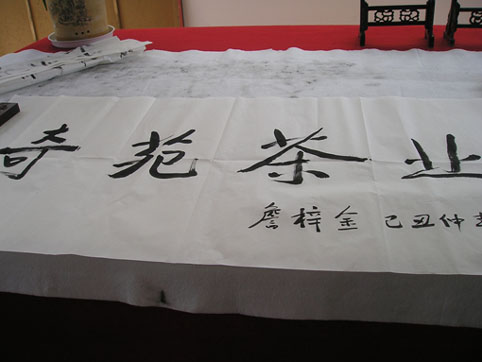 奇苑茶业
詹梓金 己丑仲